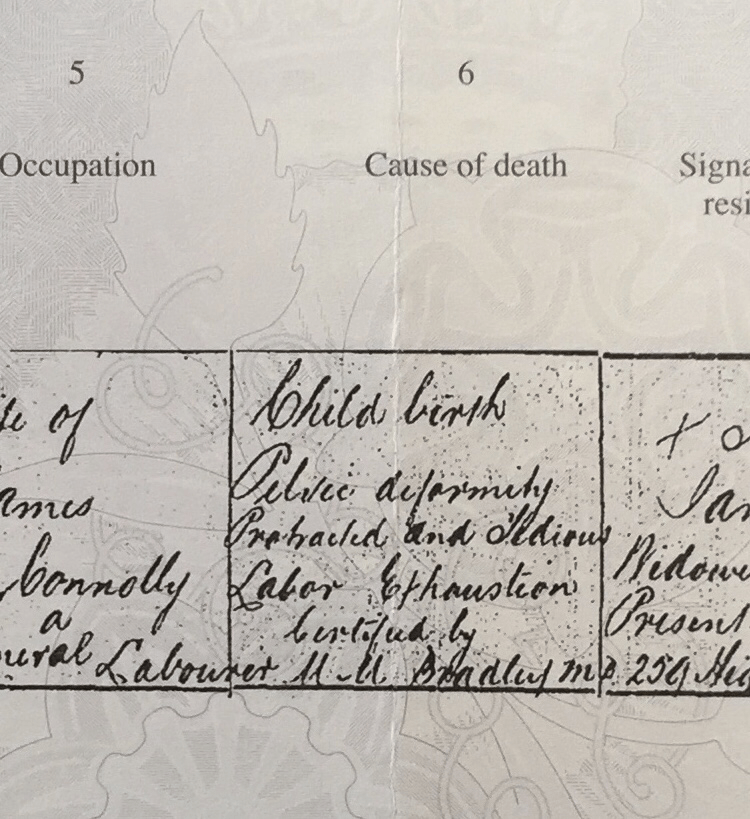 5
6
Occupation
Cause of death
Signa
resi
fe of
ames
Connolly
a
neral Labourer
Child birth
Pelvic deformity
Protracted and Tedious
Labor Exhaustion
Certified by
M. M. Bradley MB
X
Jan
Widowe
Present
259 Hig